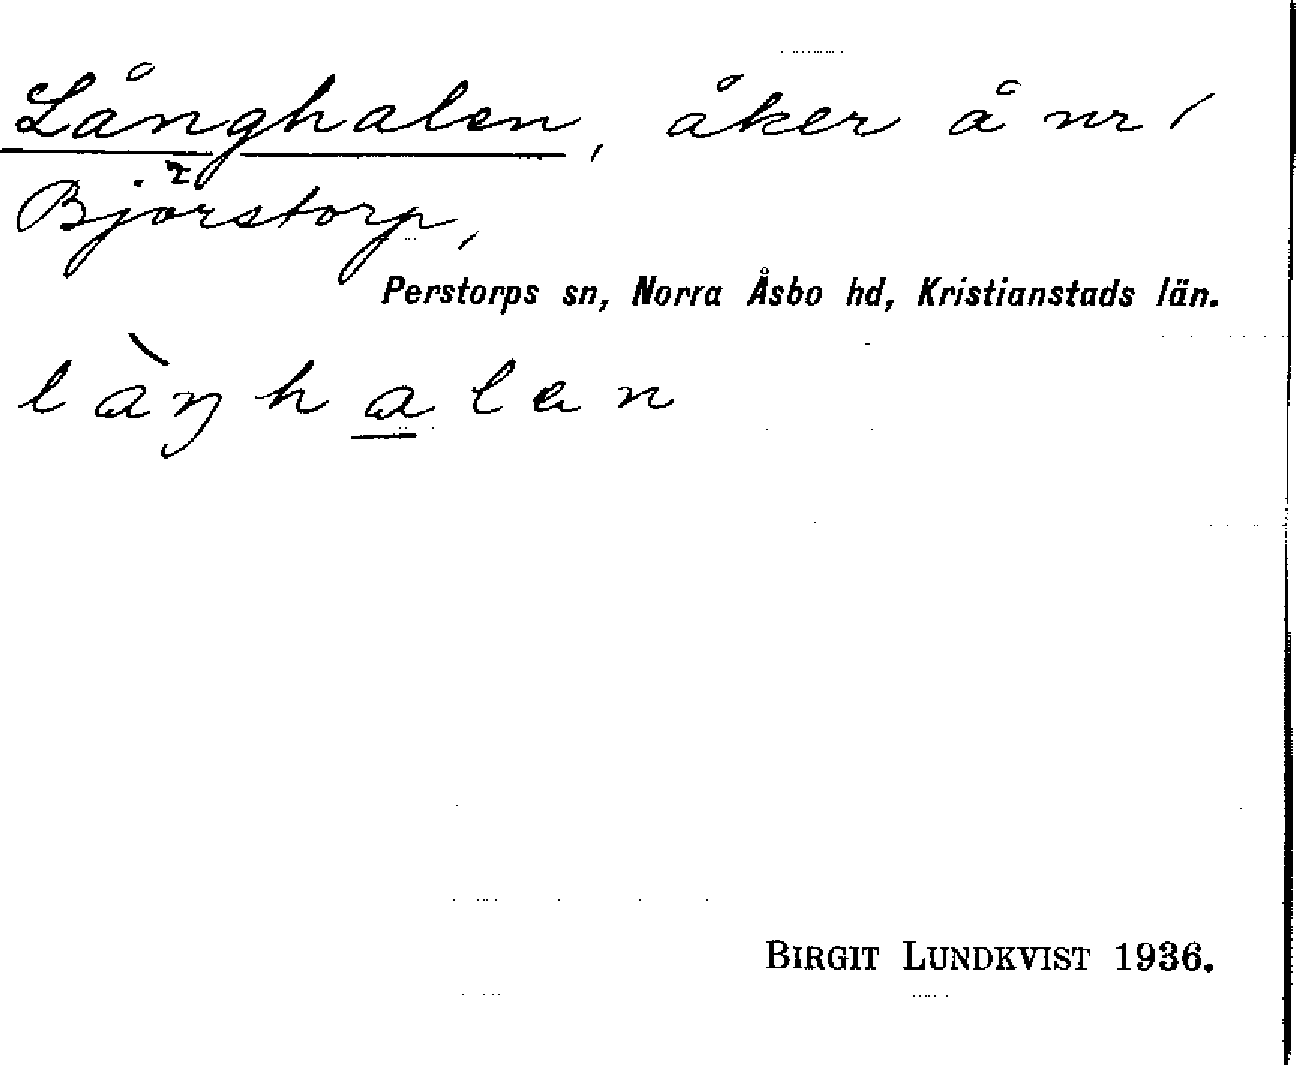 Långhalen, åker å nr 1
Björstorp,
Perstorps sn, Norra Åsbo hd, Kristianstads län.
làŋhalen
BIRGIT LUNDKVIST 1936.